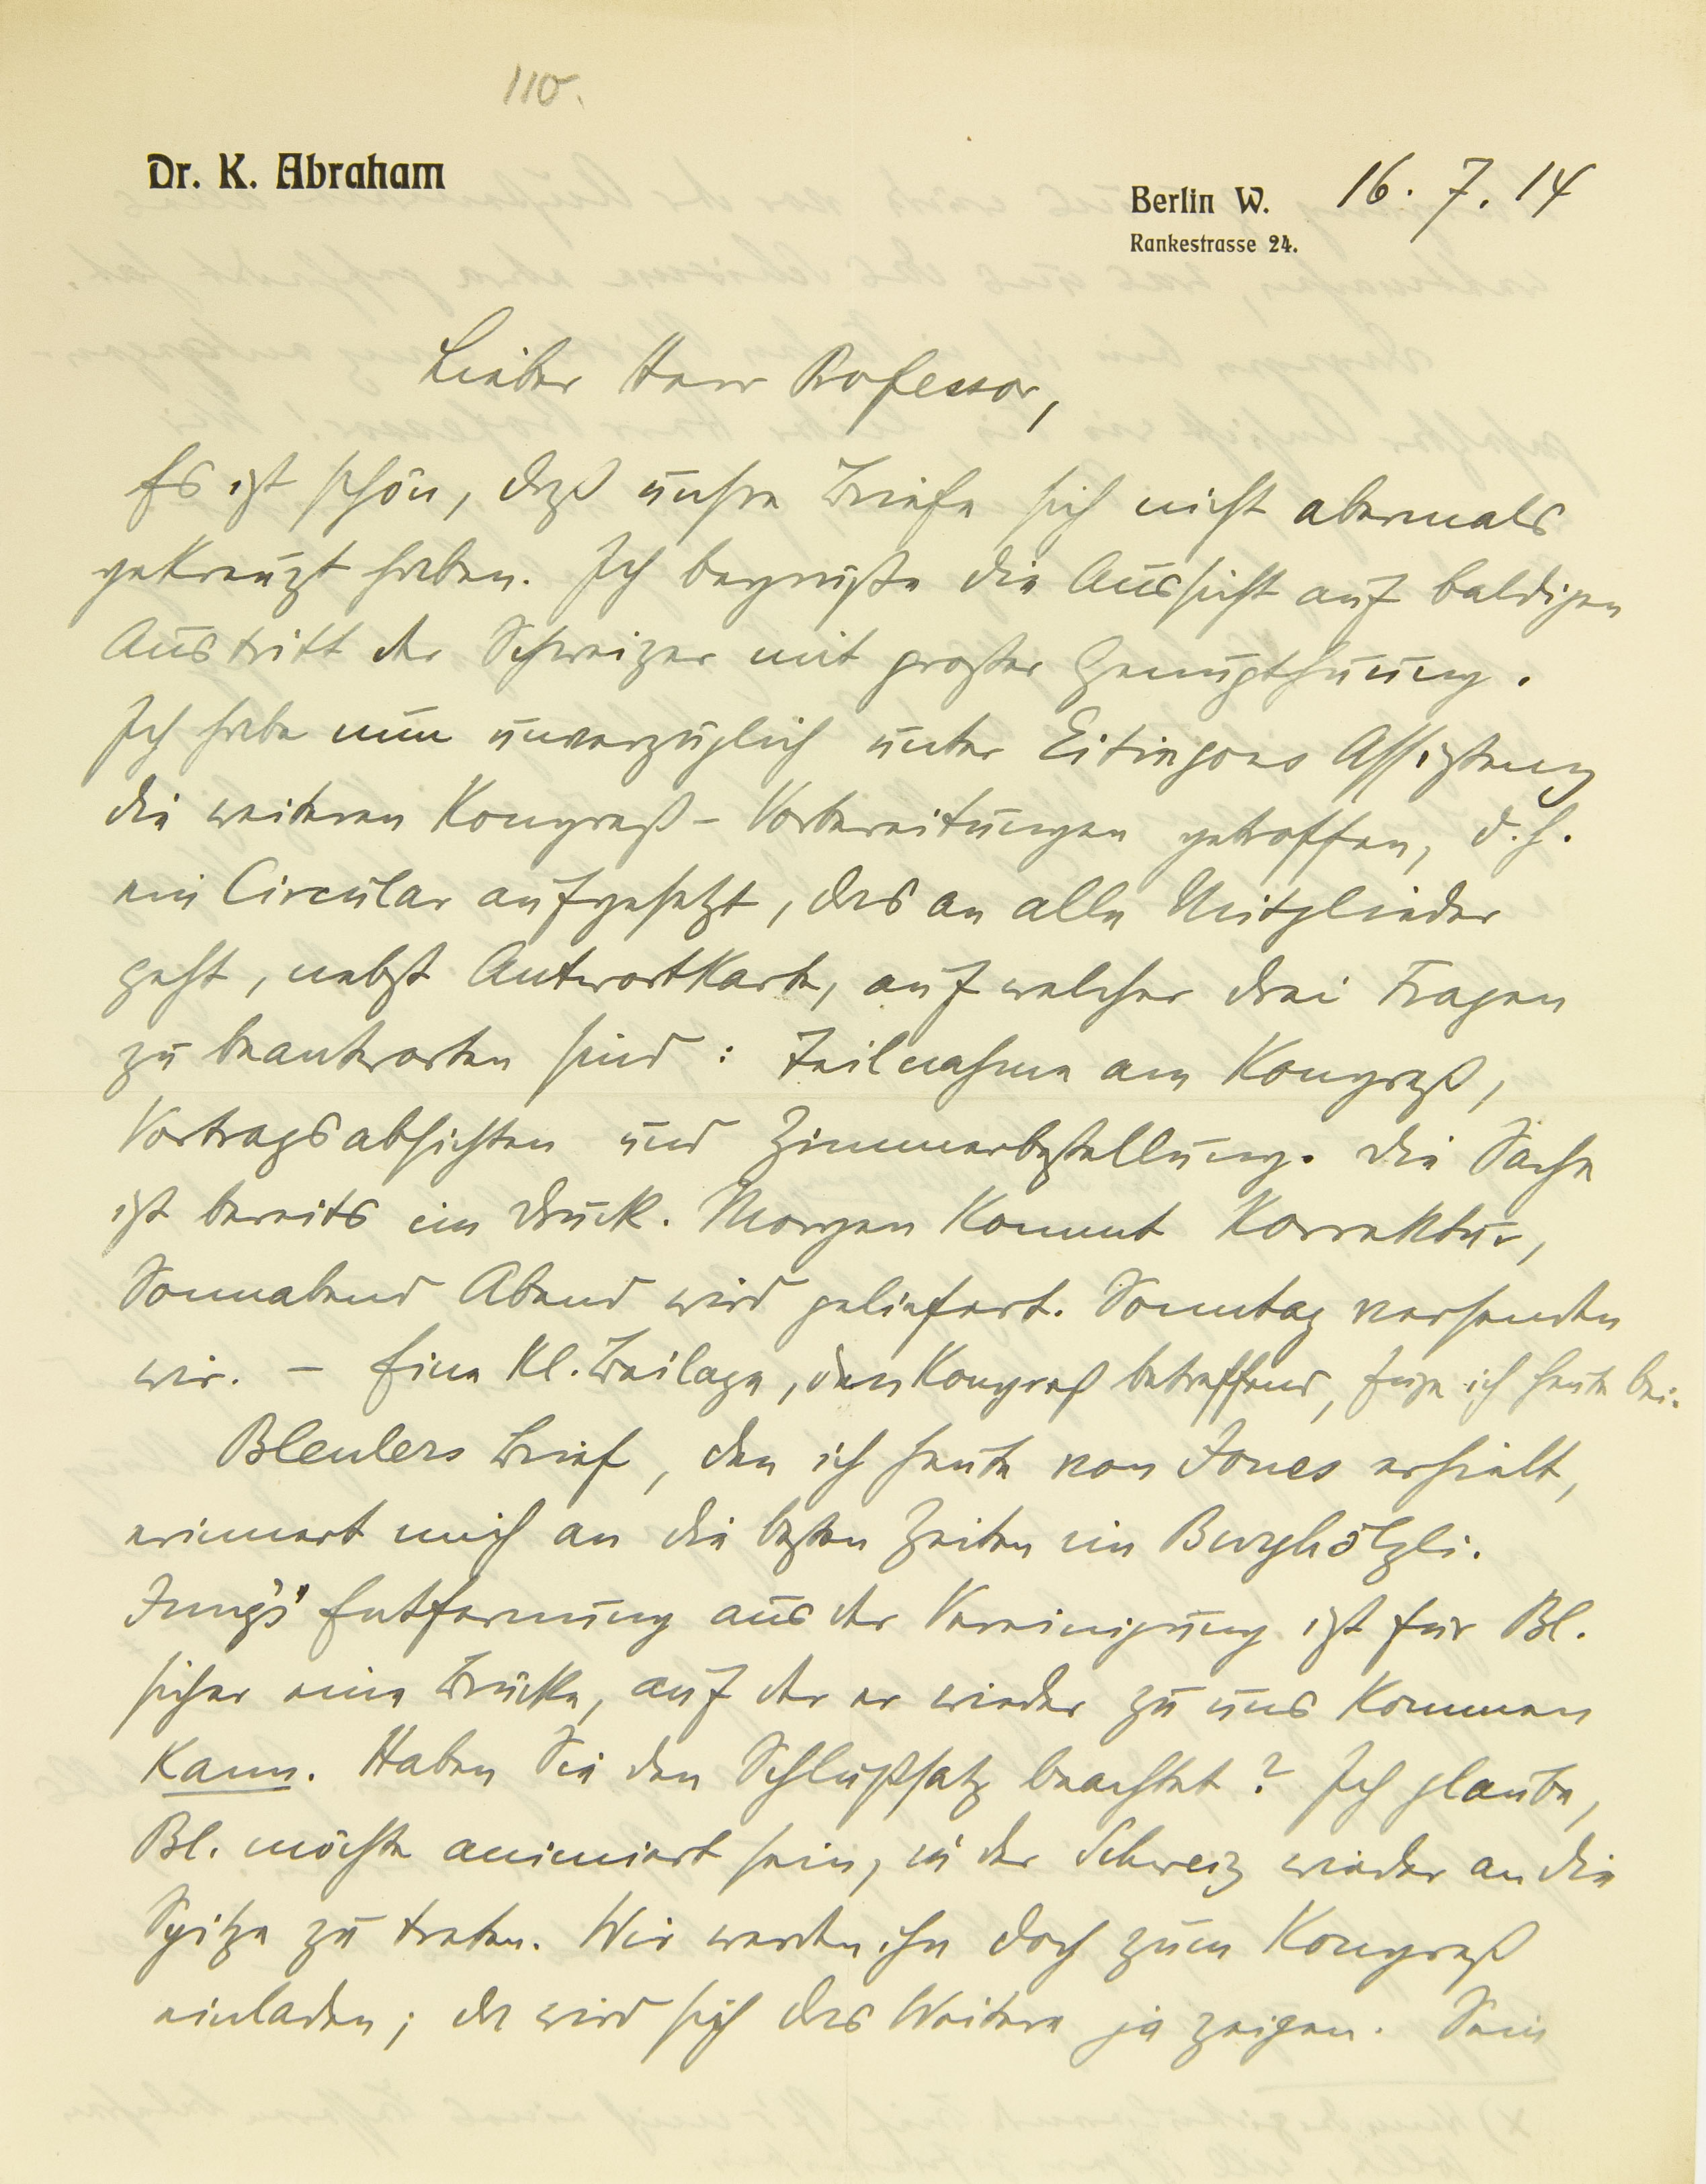 110.
Dr. K. Abraham
Berlin W. 16. 7. 14
Rankestrasse 24.
Lieber Herr Professor,
Es ist schön, daß unsre Briefe sich nicht abermals
gekreuzt haben. Ich begrüße die Aussicht auf baldigen
Austritt der Schweizer mit großer Genugthuung.
Ich habe nun unverzüglich unter Eitingons Assistenz
die weiteren Kongreß-Vorbereitungen getroffen, d.h.
ein Circular aufgesetzt, das an alle Mitglieder
geht, nebst Antwortkarte, auf welcher drei Fragen
zu beantworten sind: Teilnahme am Kongreß,
Vortragsabsichten und Zimmerbestellung. Die Sache
ist bereits im Druck. Morgen kommt Korrektur,
Sonnabend Abend wird geliefert. Sonntag versenden
wir. – Eine kl. Beilage, den Kongreß betreffend, füge ich heute bei.
Bleulers Brief, den ich heute von Jones erhielt,
erinnert mich an die besten Zeiten im Burghölzli.
Jung's Entfernung aus der Vereinigung ist für Bl.
sicher eine Brücke, auf der er wieder zu uns kommen
kann. Haben Sie den Schlußsatz beachtet? Ich glaube,
Bl. möchte animiert sein, in der Schweiz wieder an die
Spitze zu treten. Wir werden ihn doch zum Kongreß
einladen; da wird sich das Weitere ja zeigen. Sein